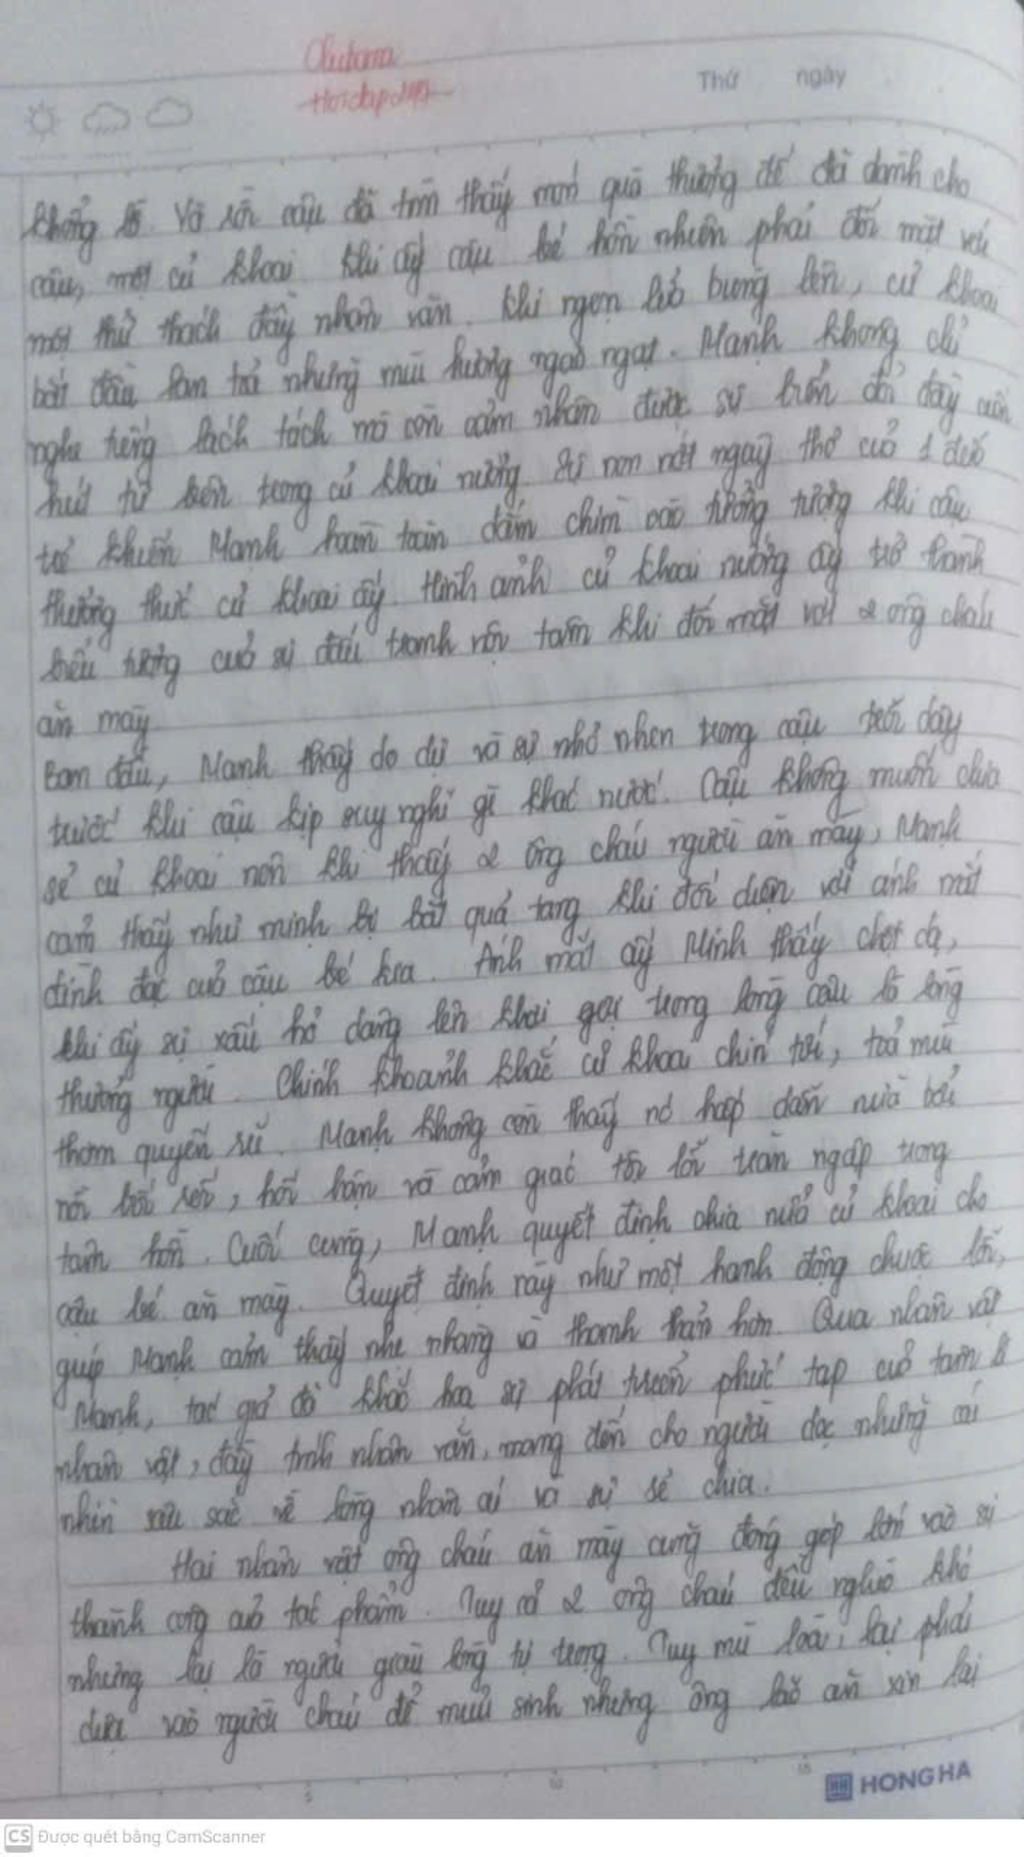 Thứ ngày
khổng lồ. Và rồi cậu đã tìm thấy món quà thượng đế đã dành cho
cậu, một củ khoai. Khi ấy cậu bé hồn nhiên phải đối mặt với
một thử thách đầy nhân văn. Khi ngọn lửa bùng lên, củ khoai
bắt đầu lan toả những mùi hương ngào ngạt. Mạnh không chỉ
nghe tiếng lách tách mà còn cảm nhận được sự đầy cuốn
hút từ bên trong củ khoai nướng. Sự non nớt ngây thơ của 1 đứa
trẻ khiến Mạnh hoàn toàn đắm chìm vào tưởng tượng khi cậu
thưởng thức củ khoai ấy. Hình ảnh củ khoai nướng ấy trở thành
biểu tượng của sự đấu tranh nội tâm khi đối mặt với 2 ông cháu
ăn mày
Ban đầu, Mạnh thấy do dự và sự nhỏ nhen trong cậu trỗi dậy
trước khi cậu kịp suy nghĩ gì khác nước. Cậu không muốn chia
sẻ củ khoai nên khi thấy 2 ông cháu người ăn mày, Mạnh
cảm thấy như mình bị bắt quả tang khi đối diện với ánh mắt
đĩnh đạc của cậu bé kia. Ánh mắt ấy Minh thấy chột dạ,
khi ấy sự xấu hổ dâng lên khơi gợi trong lòng cậu là lòng
thương người. Chính khoảnh khắc củ khoai chín tới, toả mùi
thơm quyến rũ. Mạnh không còn thấy nó hấp dẫn nữa bởi
nỗi bối rối, hối hận và cảm giác tội lỗi tràn ngập trong
tâm hồn. Cuối cùng, Mạnh quyết định chia nửa củ khoai cho
cậu bé ăn mày. Quyết định này như một hành động chuộc lỗi,
giúp Mạnh cảm thấy nhẹ nhàng và thanh thản hơn. Qua nhân vật
Mạnh, tác giả đã khắc hoạ sự phát triển phức tạp của tâm lí
nhân vật, đầy tính nhân văn, mang đến cho người đọc những cái
nhìn sâu sắc về lòng nhân ái và sự sẻ chia.
Hai nhân vật ông cháu ăn mày cũng đóng góp lớn vào sự
thành công của tác phẩm. Tuy cả 2 ông cháu đều nghèo khó
nhưng lại là người giàu lòng tự trọng. Tuy mù loà, lại phải
dựa vào người cháu để mưu sinh nhưng ông lão ăn xin lại
5 10 15
HONG HA
CS Được quét bằng CamScanner